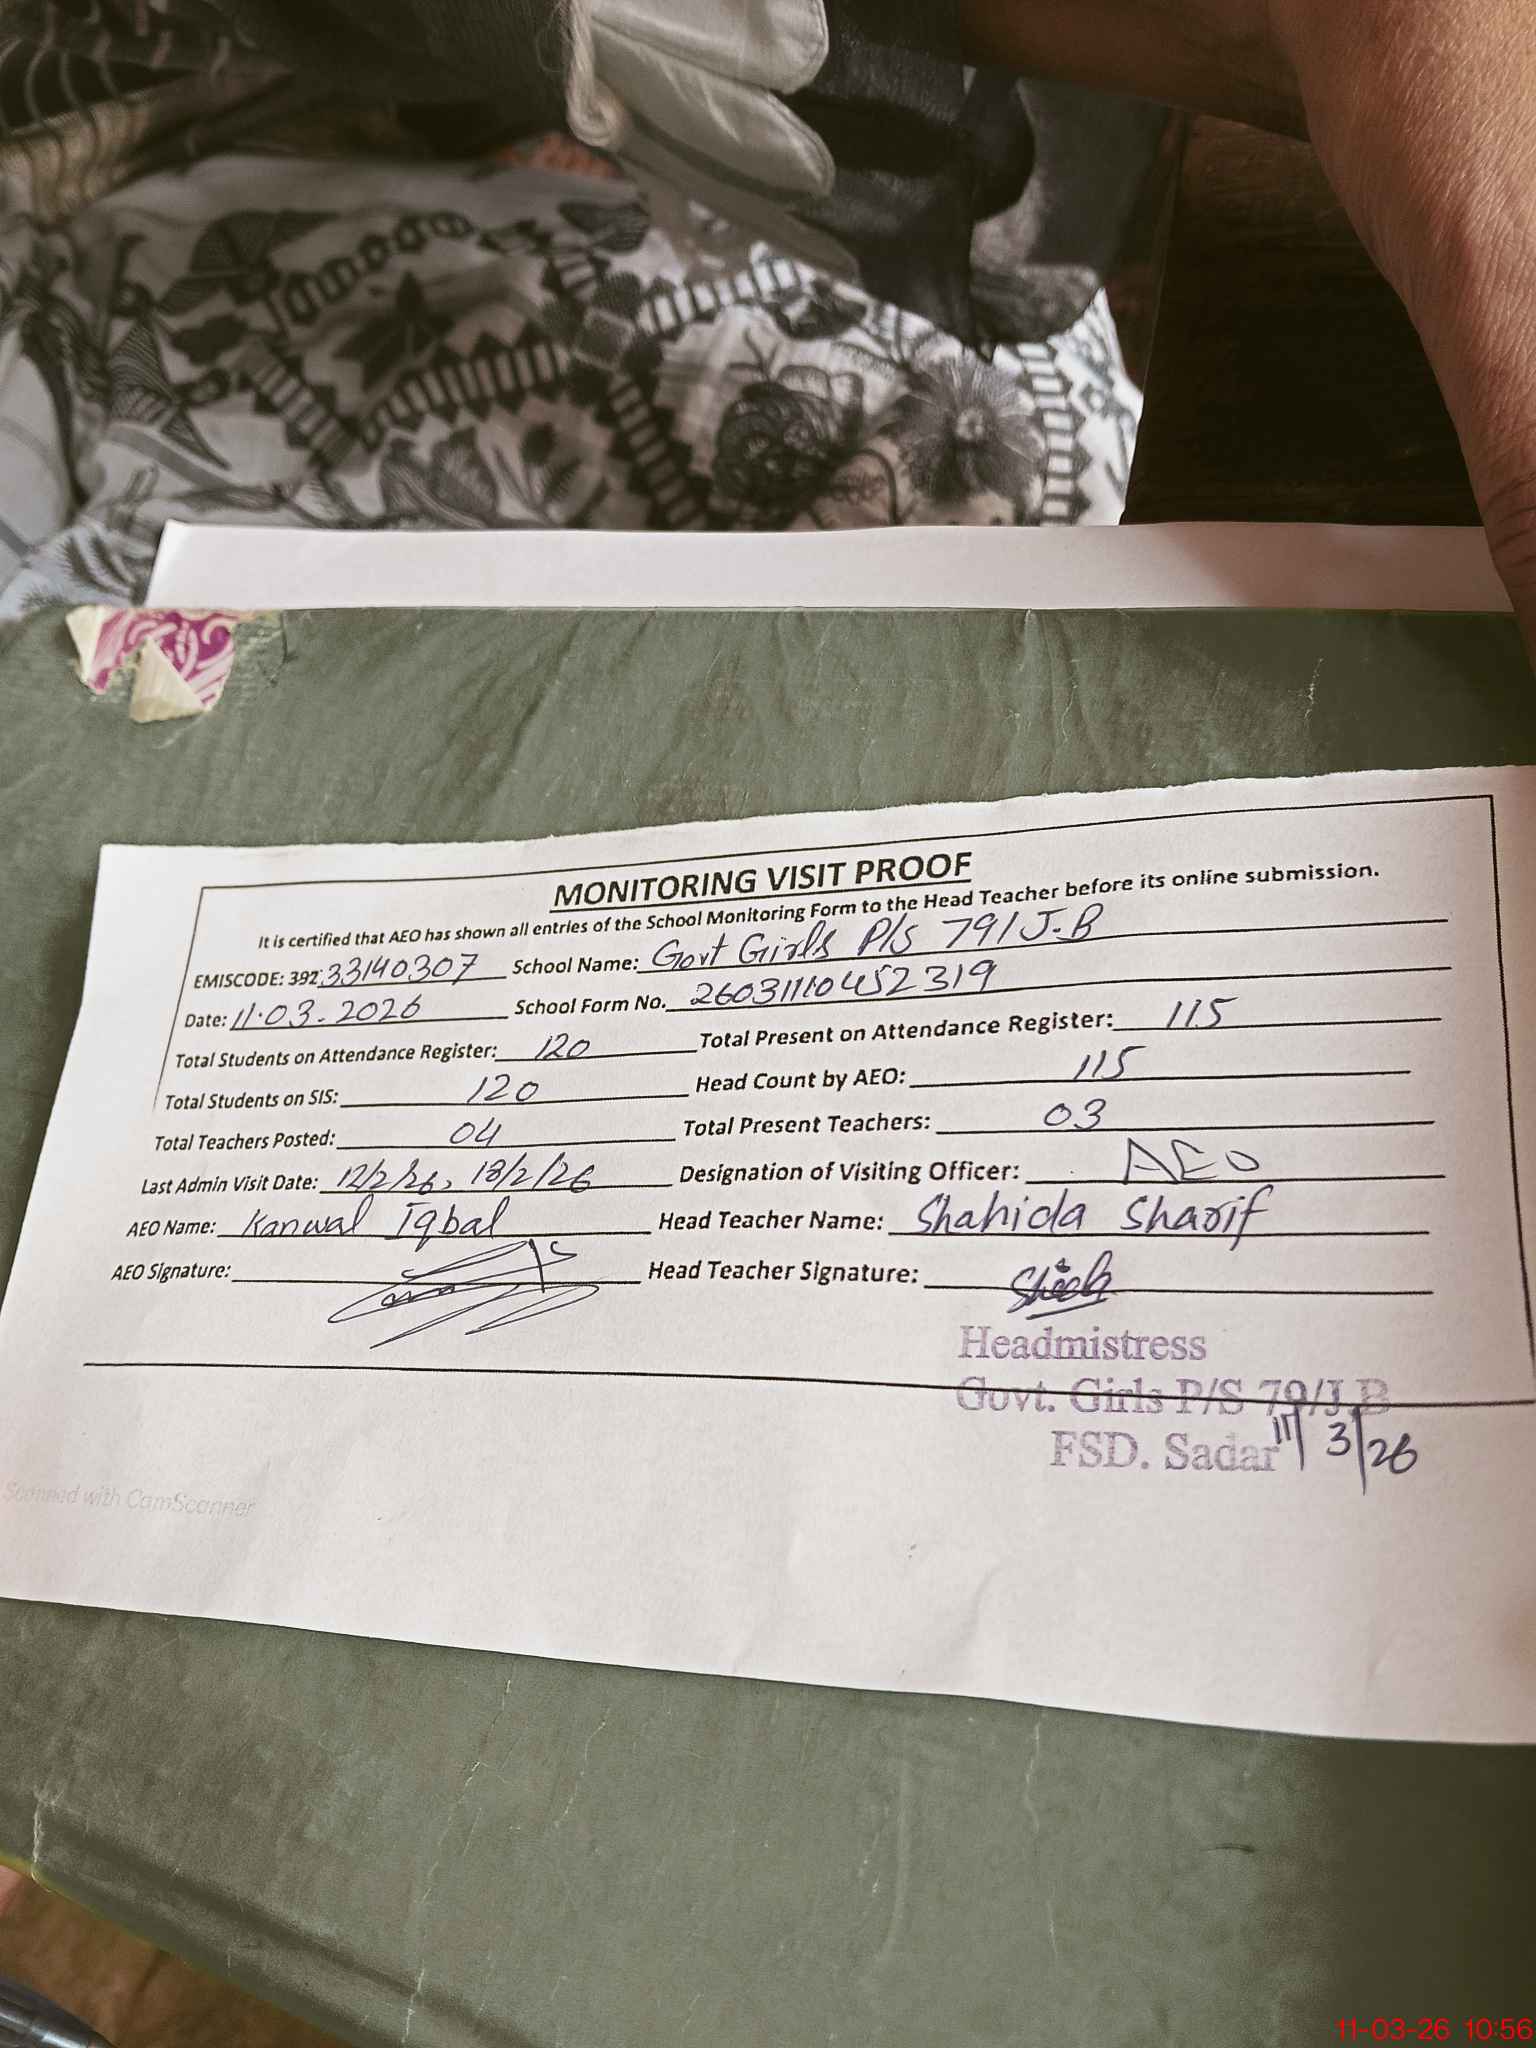 MONITORING VISIT PROOF
It is certified that AEO has shown all entries of the School Monitoring Form to the Head Teacher before its online submission.
EMISCODE: 392 33140307 School Name: Govt Girls P/S 79/J.B
Date: 11.03.2026 School Form No. 26031110452319
Total Students on Attendance Register: 120 Total Present on Attendance Register: 115
Total Students on SIS: 120 Head Count by AEO: 115
Total Teachers Posted: 04 Total Present Teachers: 03
Last Admin Visit Date: 12/2/26, 18/2/26 Designation of Visiting Officer: AEO
AEO Name: Kanwal Iqbal Head Teacher Name: Shahida Sharif
AEO Signature: Head Teacher Signature:
Headmistress
Govt. Girls P/S 79/J.B
FSD. Sadar 11/3/26
Scanned with CamScanner
11-03-26 10:56